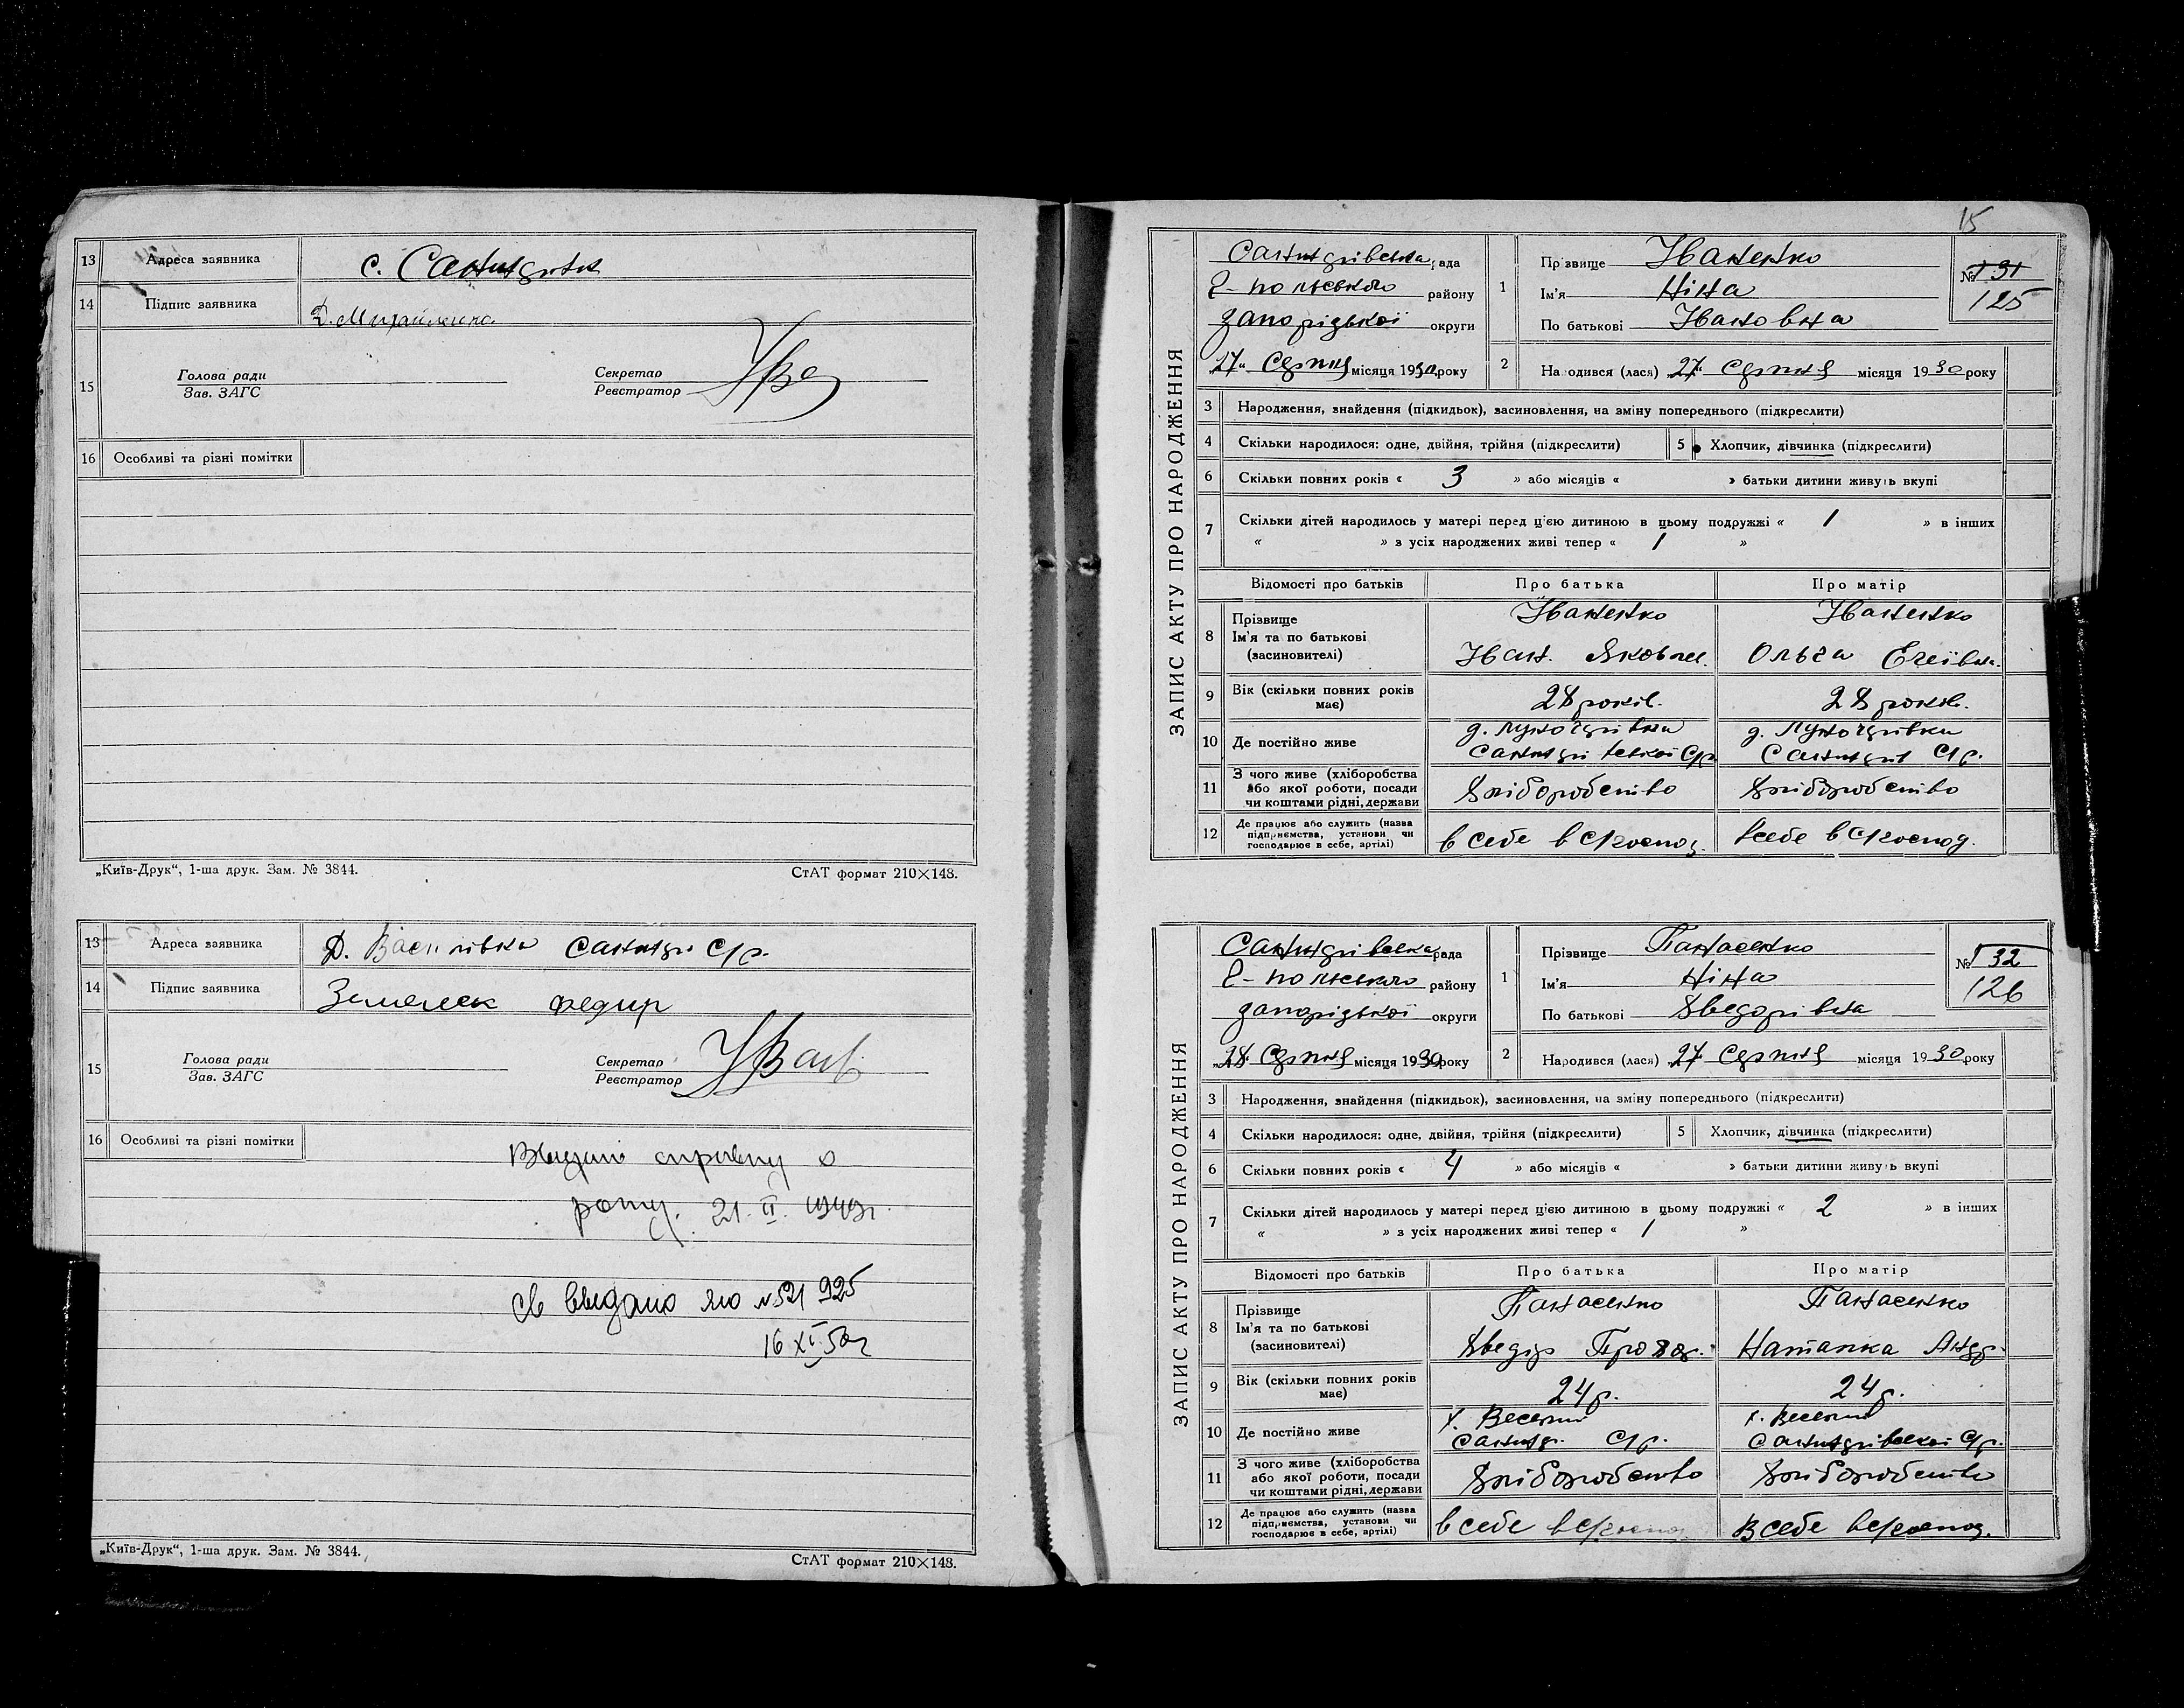 13 Адреса заявника с. Санжарівка
14 Підпис заявника Д. Михайленко
15 Голова ради
Зав. ЗАГС
Секретар
Реєстратор
16 Особливі та різні помітки
„Київ-Друк“, 1-ша друк. Зам. № 3844. СтАТ формат 210×148.
13 Адреса заявника Д. Василівка С/р.
14 Підпис заявника Федир
15 Голова ради
Зав. ЗАГС
Секретар
Реєстратор
16 Особливі та різні помітки
21. II. 1949г.
св выдано яю № 521925
16 XI 50г
„Київ-Друк“, 1-ша друк. Зам. № 3844. СтАТ формат 210×148.
15
ЗАПИС АКТУ ПРО НАРОДЖЕННЯ
рада
району
запорізької округи
„27“ Серпня місяця 1930 року
1 Прізвище Иваненко
Ім'я Ніна
По батькові Ивановна
№ 131
125
2 Народився (лася) „27“ Серпня місяця 1930 року
3 Народження, знайдення (підкидьок), засиновлення, на зміну попереднього (підкреслити)
4 Скільки народилося: одне, двійня, трійня (підкреслити) 5 Хлопчик, дівчинка (підкреслити)
6 Скільки повних років « 3 » або місяців « » батьки дитини живуть вкупі
7 Скільки дітей народилось у матері перед цією дитиною в цьому подружжі « 1 » в інших
« » з усіх народжених живі тепер « 1 »
Відомості про батьків Про батька Про матір
8 Прізвище Иваненко Иваненко
Ім'я та по батькові
(засиновителі) Иван. Яковл. Ольга
9 Вік (скільки повних років має) 28 років. 28 років.
10 Де постійно живе
С/р. С/р.
11 З чого живе (хліборобства або якої роботи, посади чи коштами рідні, держави Хліборобство Хліборобство
12 Де працює або служить (назва підприємства, установи чи господарює в себе, артілі) в себе в с/господ. в себе в с/господ.
ЗАПИС АКТУ ПРО НАРОДЖЕННЯ
рада
району
запорізької округи
„28“ Серпня місяця 1930 року
1 Прізвище Панасенко
Ім'я Ніна
По батькові Хведорівна
№ 132
126
2 Народився (лася) „27“ Серпня місяця 1930 року
3 Народження, знайдення (підкидьок), засиновлення, на зміну попереднього (підкреслити)
4 Скільки народилося: одне, двійня, трійня (підкреслити) 5 Хлопчик, дівчинка (підкреслити)
6 Скільки повних років « 4 » або місяців « » батьки дитини живуть вкупі
7 Скільки дітей народилось у матері перед цією дитиною в цьому подружжі « 2 » в інших
« » з усіх народжених живі тепер « 1 »
Відомості про батьків Про батька Про матір
8 Прізвище Панасенко Панасенко
Ім'я та по батькові
(засиновителі) Хведір Прохор. Наталка Андр.
9 Вік (скільки повних років має) 24 р. 24 р.
10 Де постійно живе х. Веселий х. Веселий
С/р. С/р.
11 З чого живе (хліборобства або якої роботи, посади чи коштами рідні, держави Хліборобство Хліборобство
12 Де працює або служить (назва підприємства, установи чи господарює в себе, артілі) в себе в с/господ. в себе в с/господ.